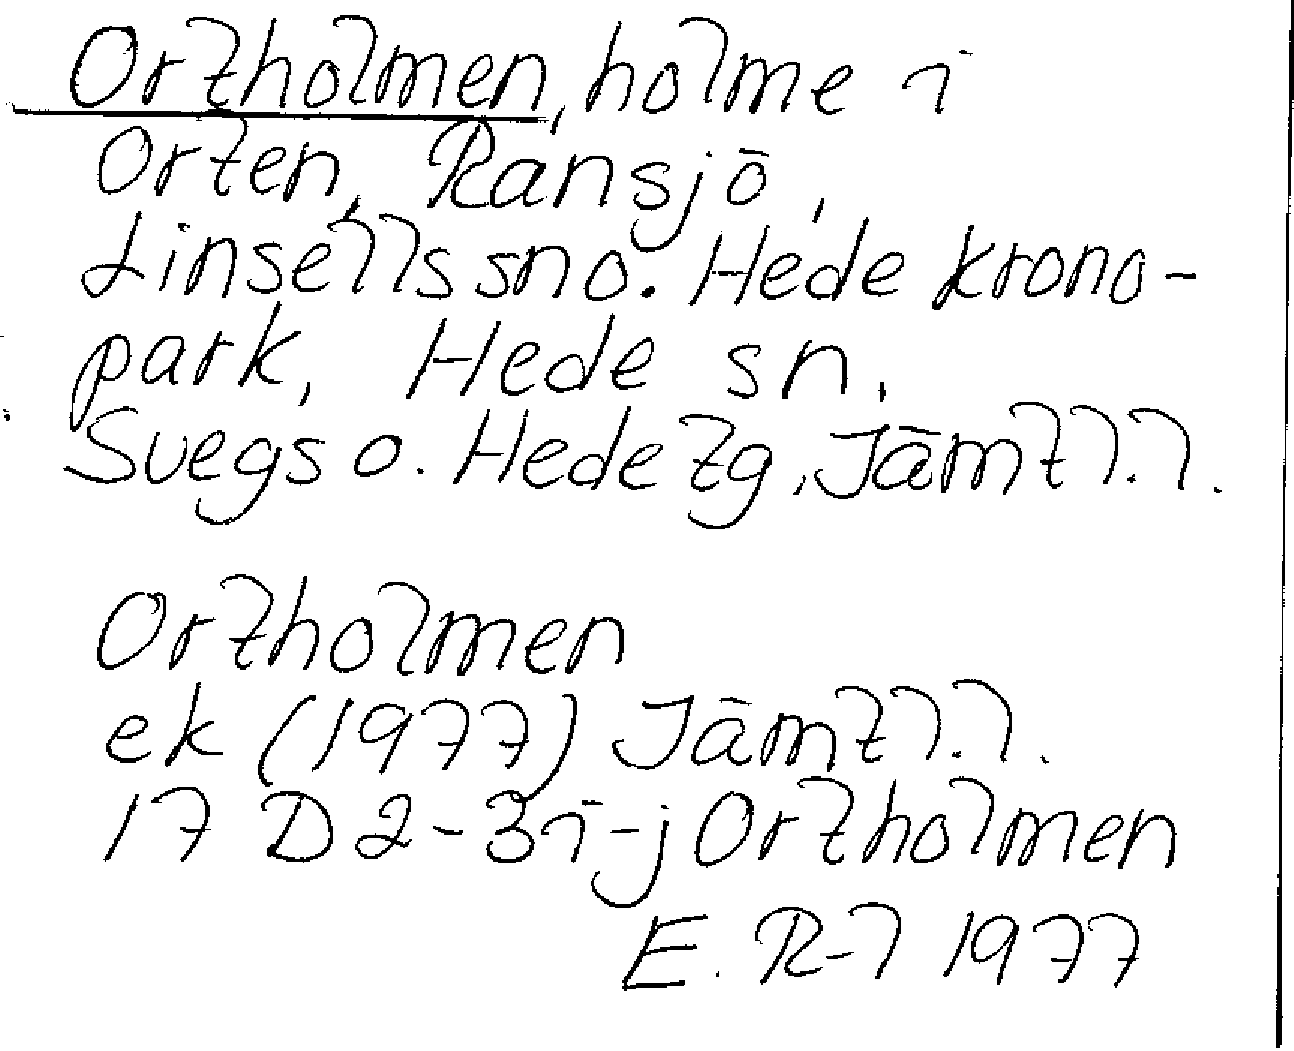 Ortholmen, holme i
Orten, Ransjö,
Linsells sn o. Hede krono-
park, Hede sn,
Svegs o. Hede tg, Jämtl. l.
Ortholmen
ek (1977) Jämtl. l.
17 D 2-3 i-j Ortholmen
E. R-l 1977